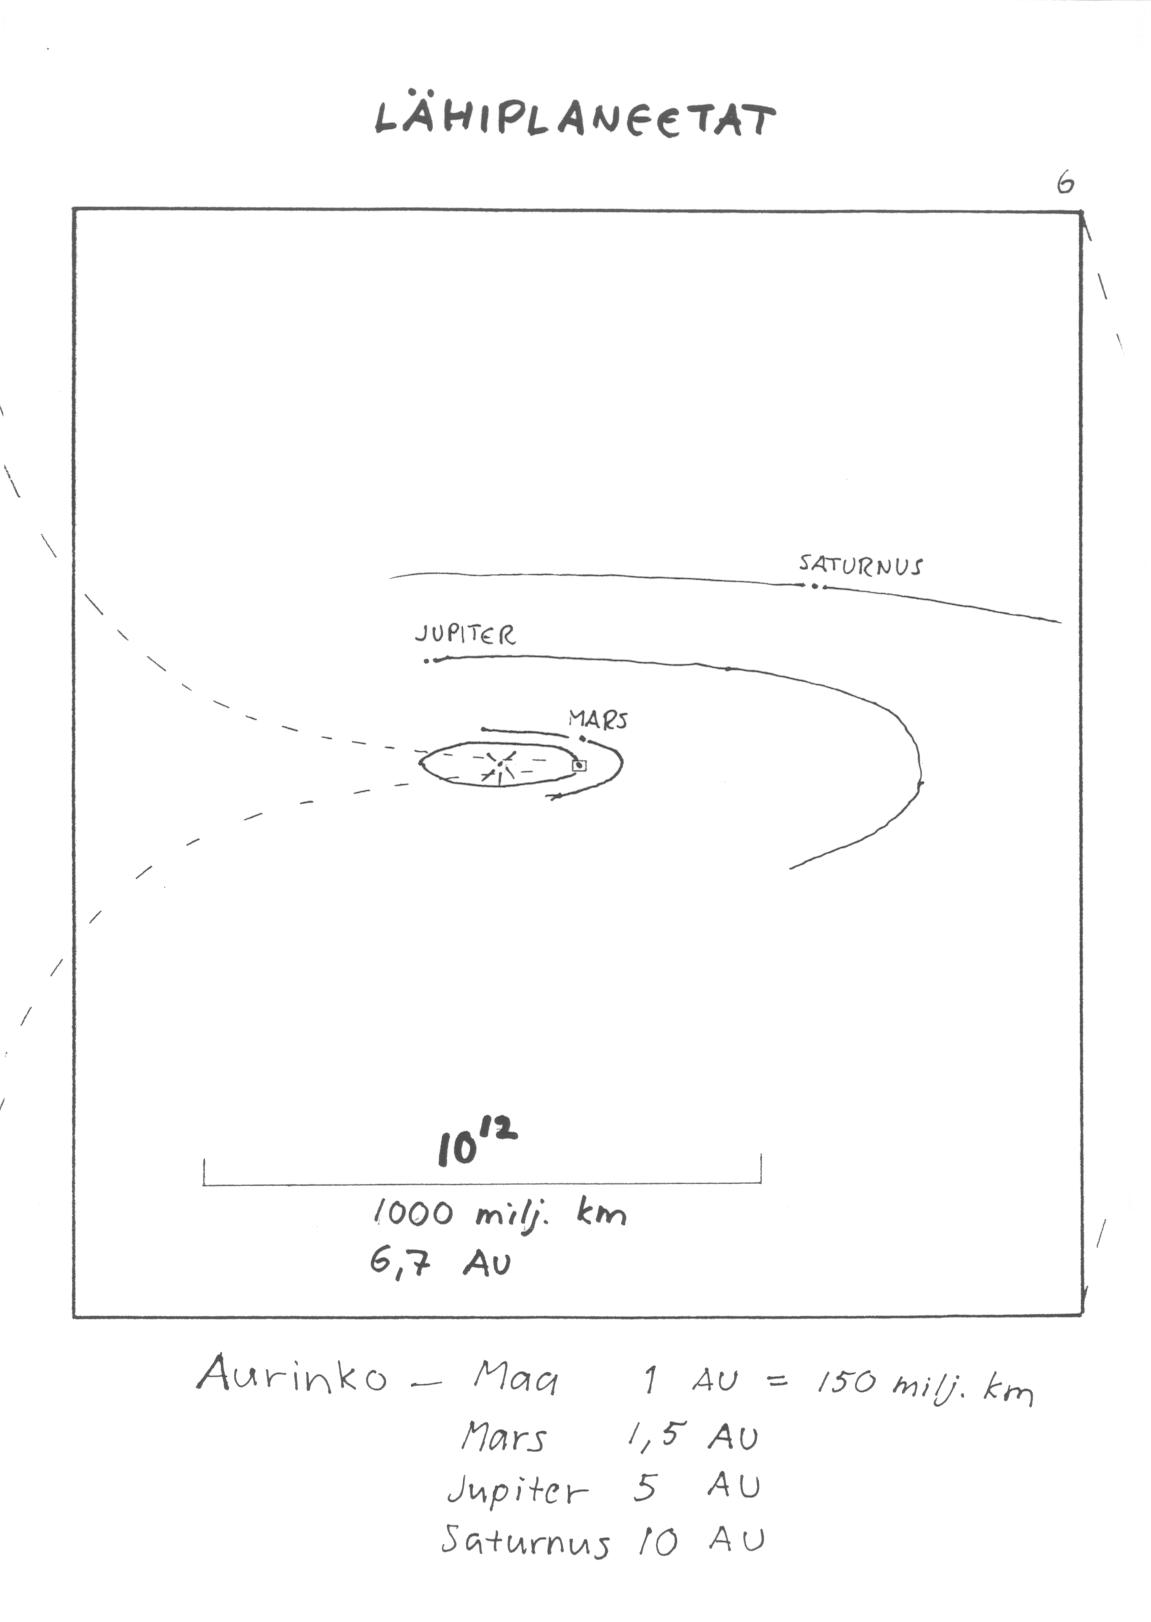 LÄHIPLANEETAT
6
SATURNUS
JUPITER
MARS
10¹²
1000 milj. km
6,7 AU
Aurinko – Maa 1 AU = 150 milj. km
Mars 1,5 AU
Jupiter 5 AU
Saturnus 10 AU